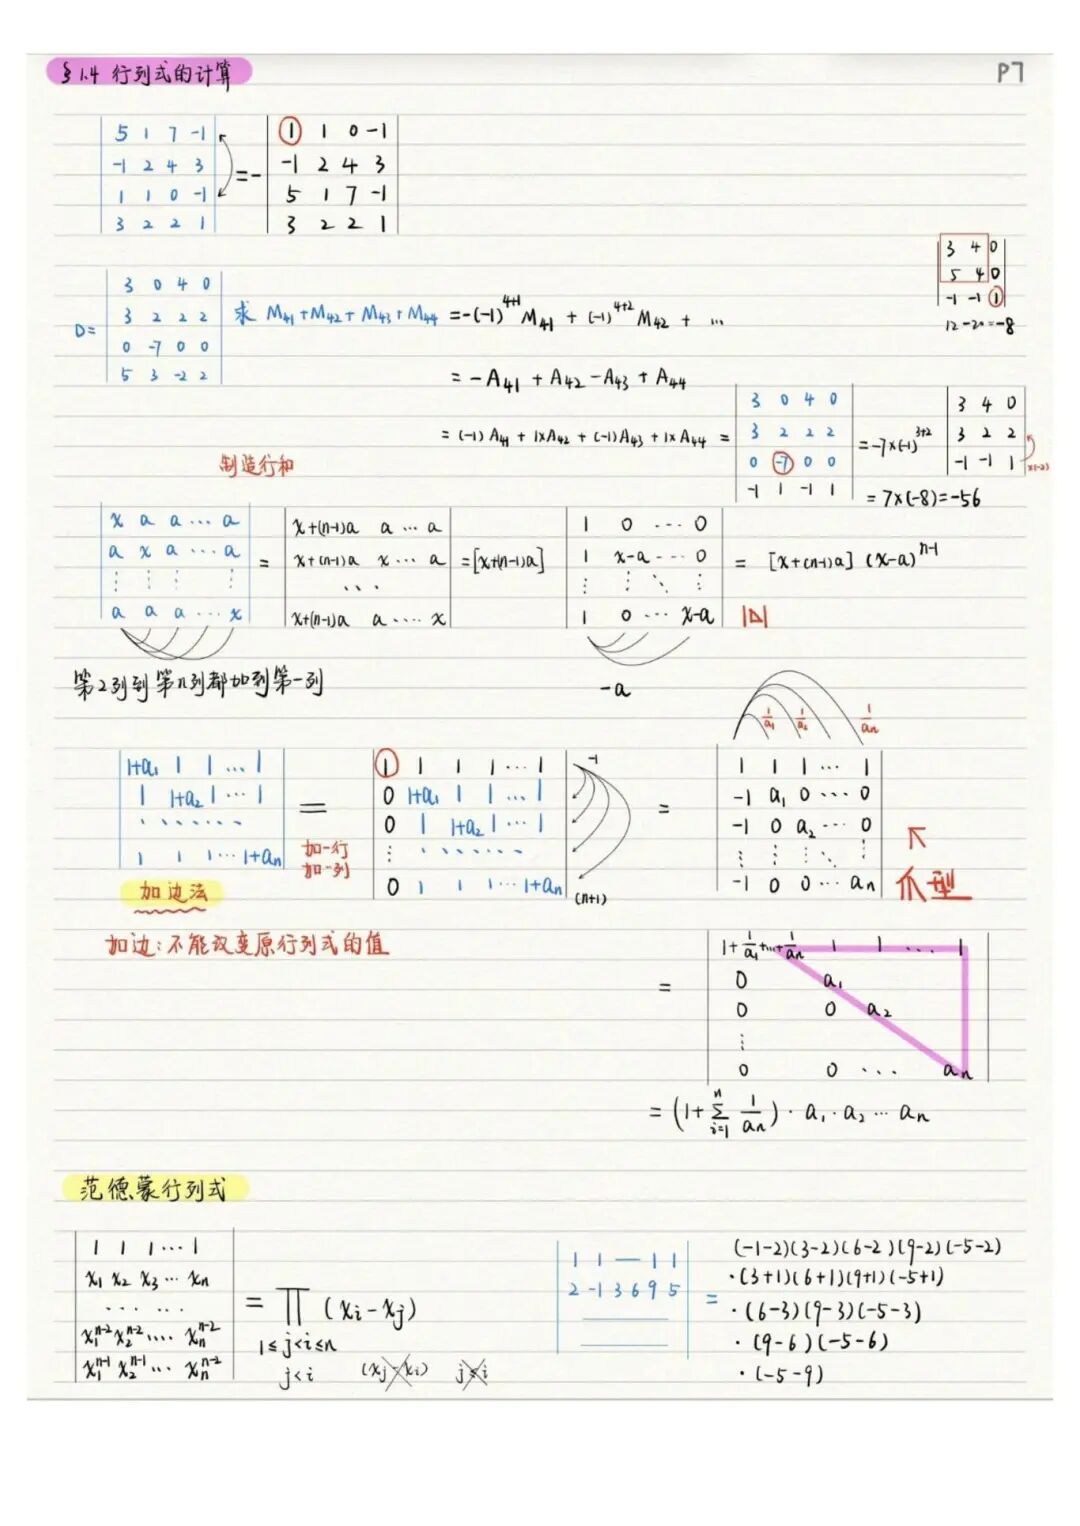 §1.4 行列式的计算
P7
5 1 7 -1
-1 2 4 3
1 1 0 -1
3 2 2 1
=-
1 1 0 -1
-1 2 4 3
5 1 7 -1
3 2 2 1
3 4 0
5 4 0
-1 -1 1
12-20=-8
D=
3 0 4 0
3 2 2 2
0 -7 0 0
5 3 -2 2
求 M₄₁+M₄₂+M₄₃+M₄₄ =-(-1)⁴⁺¹M₄₁ + (-1)⁴⁺²M₄₂ + …
= -A₄₁ + A₄₂ -A₄₃ + A₄₄
= (-1) A₄₁ + 1×A₄₂ + (-1)A₄₃ + 1×A₄₄ =
3 0 4 0
3 2 2 2
0 -7 0 0
-1 1 -1 1
=-7×(-1)³⁺²
3 4 0
3 2 2
-1 -1 1
×(-2)
= 7×(-8)=-56
制造行和
x a a … a
a x a … a
⋮ ⋮ ⋮ ⋮
a a a … x
=
x+(n-1)a a … a
x+(n-1)a x … a
…
x+(n-1)a a … x
=[x+(n-1)a]
1 0 … 0
1 x-a … 0
⋮ ⋮ ⋱ ⋮
1 0 … x-a
= [x+(n-1)a] (x-a)ⁿ⁻¹
第2列到第n列都加到第一列
-a
1/a₁ 1/a₂ 1/aₙ
1+a₁ 1 1 … 1
1 1+a₂ 1 … 1
……
1 1 1 … 1+aₙ
=
加一行
加一列
1 1 1 1 … 1
0 1+a₁ 1 1 … 1
0 1 1+a₂ 1 … 1
⋮ ……
0 1 1 1 … 1+aₙ
-1
(n+1)
=
1 1 1 … 1
-1 a₁ 0 … 0
-1 0 a₂ … 0
⋮ ⋮ ⋮ ⋱ ⋮
-1 0 0 … aₙ
爪型
加边法
加边:不能改变原行列式的值
=
1+1/a₁+…+1/aₙ 1 1 … 1
0 a₁
0 0 a₂
⋮
0 0 … aₙ
= (1+∑ⁿᵢ₌₁ 1/aₙ)·a₁·a₂…aₙ
范德蒙行列式
1 1 1 … 1
x₁ x₂ x₃ … xₙ
……
x₁ⁿ⁻² x₂ⁿ⁻² … xₙⁿ⁻²
x₁ⁿ⁻¹ x₂ⁿ⁻¹ … xₙⁿ⁻²
= ∏ (xᵢ-xⱼ)
1≤j<i≤n
j<i
1 1 — 1 1
2 -1 3 6 9 5
=
(-1-2)(3-2)(6-2)(9-2)(-5-2)
·(3+1)(6+1)(9+1)(-5+1)
·(6-3)(9-3)(-5-3)
·(9-6)(-5-6)
·(-5-9)